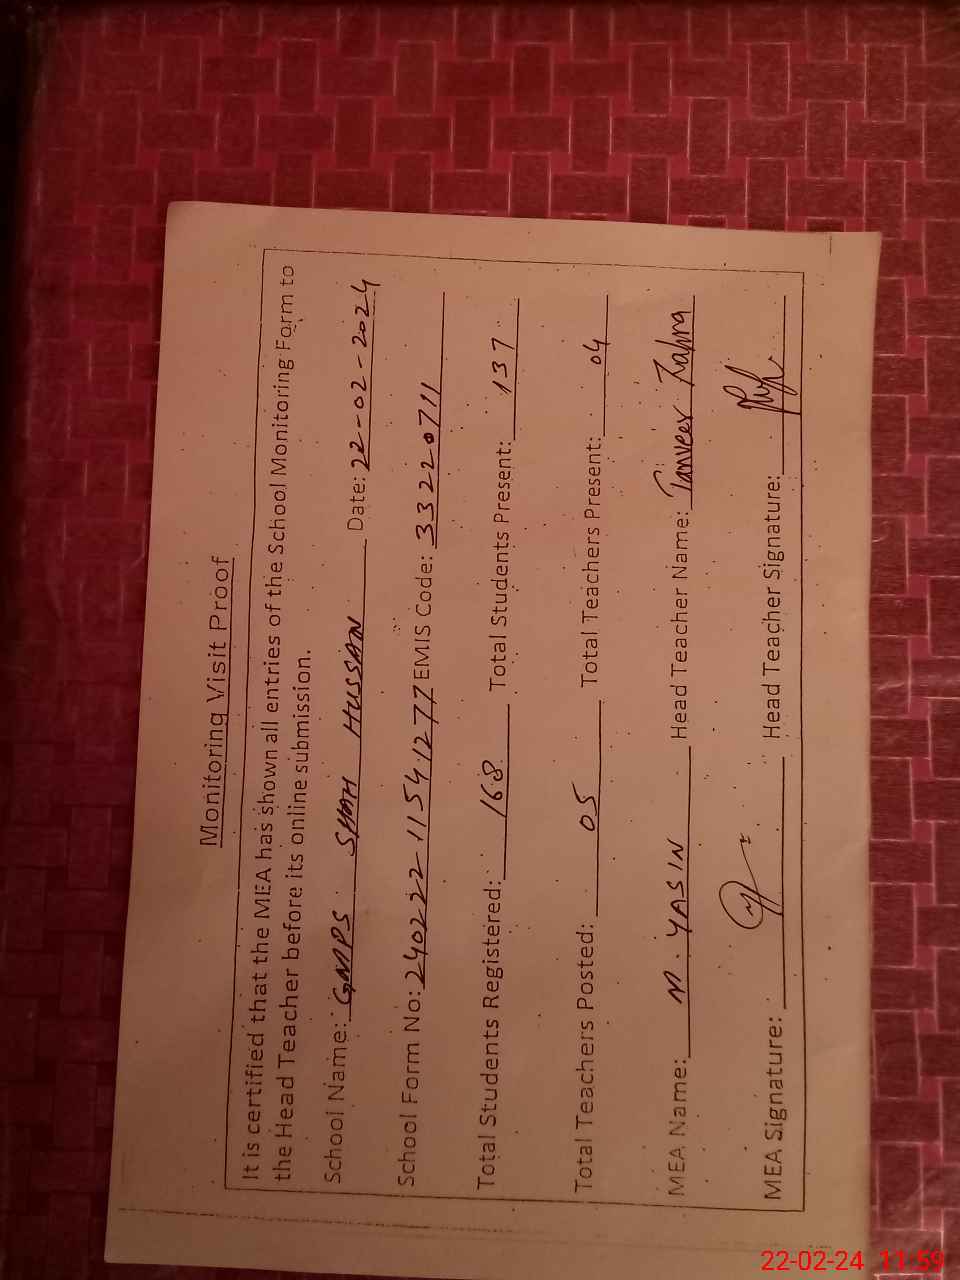 Monitoring Visit Proof
It is certified that the MEA has shown all entries of the School Monitoring Form to
the Head Teacher before its online submission.
School Name: GMPS SHAH HUSSAN Date: 22-02-2024
School Form No: 24022211541277 EMIS Code: 33220711
Total Students Registered: 168 Total Students Present: 137
Total Teachers Posted: 05 Total Teachers Present: 04
MEA Name: M. YASIN Head Teacher Name: Tanveer Zahra
MEA Signature: Head Teacher Signature:
22-02-24 11:59